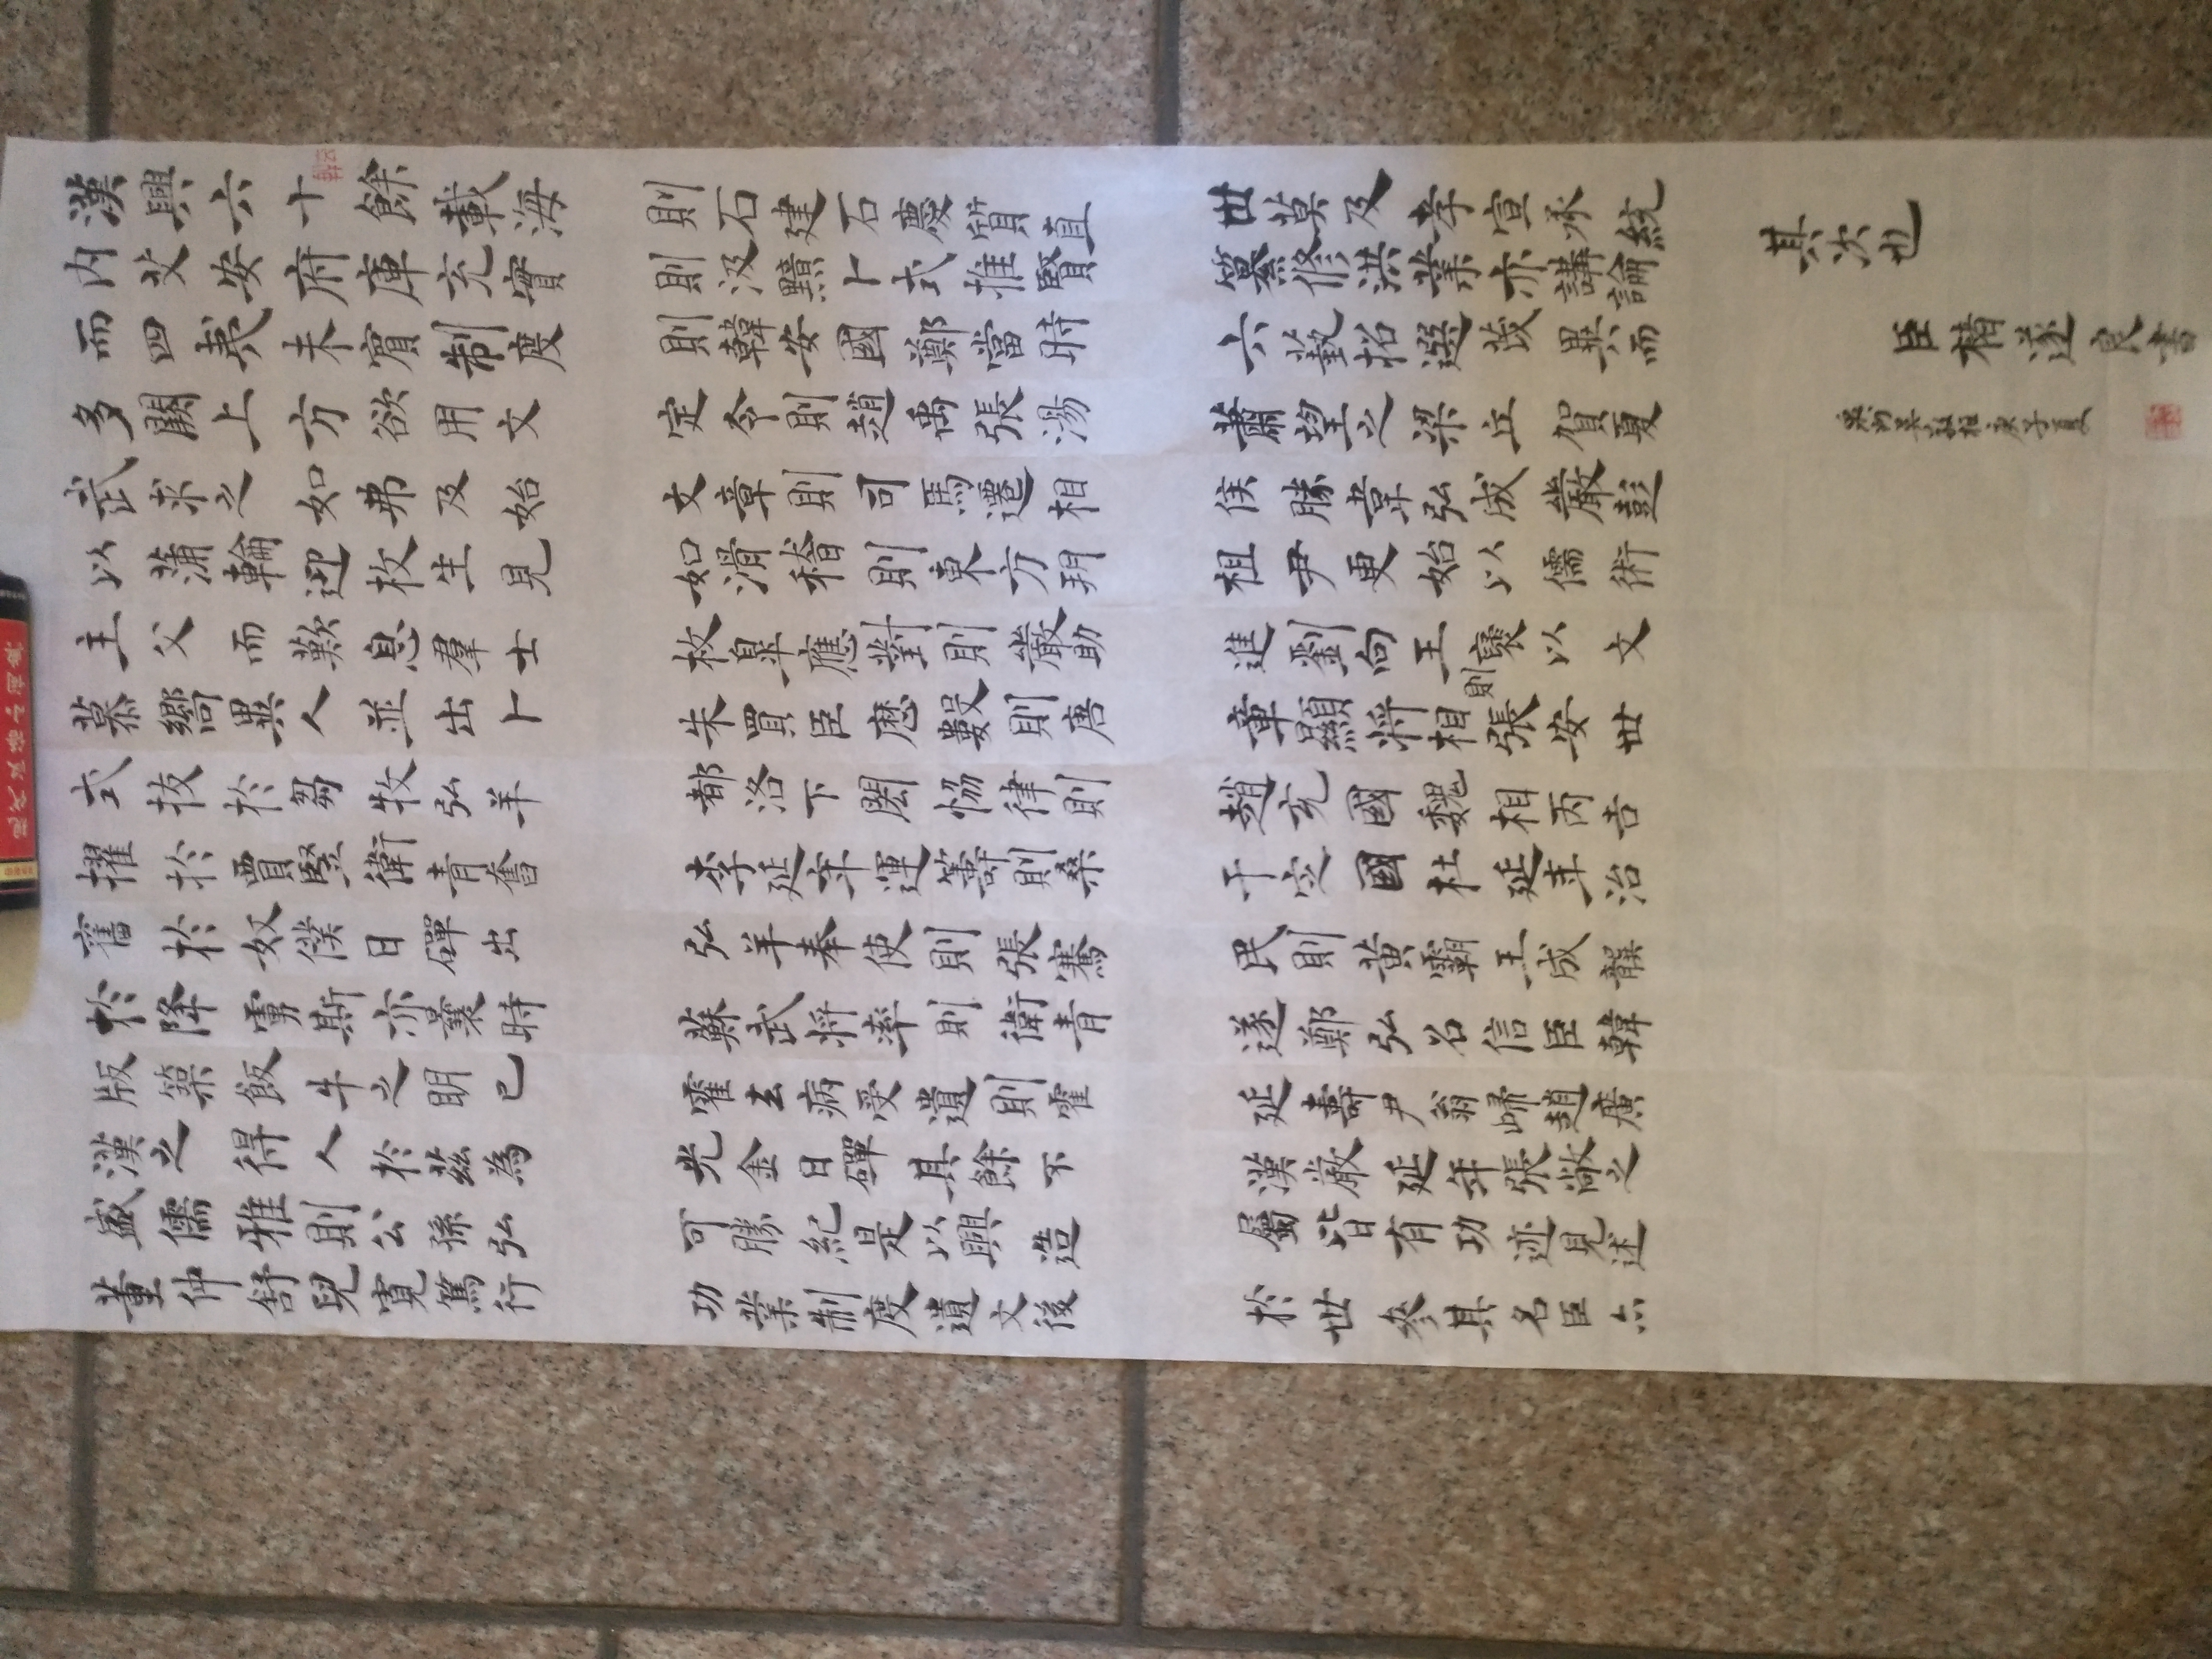 漢興六十餘載海
内艾安府庫充實
而四夷未賓制度
多闕上方欲用文
武求之如弗及始
以蒲輪迎枚生見
主父而歎息羣士
慕嚮異人並出卜
式拔於芻牧弘羊
擢於賈豎衛青奮
奮於奴僕日磾出
於降虜斯亦曩時
版築飯牛之明已
漢之得人於茲為
盛儒雅則公孫弘
董仲舒兒寬篤行
則石建石慶質直
則汲黯卜式推賢
則韓安國鄭當時
定令則趙禹張湯
文章則司馬遷相
如滑稽則東方朔
枚皋應對則嚴助
朱買臣歷數則唐
都洛下閎協律則
李延年運籌則桑
弘羊奉使則張騫
蘇武將率則衛青
霍去病受遺則霍
光金日磾其餘不
可勝紀是以興造
功業制度遺文後
世莫及孝宣承統
纂修洪業亦講論
六藝招選茂異而
蕭望之梁丘賀夏
侯勝韋弘成嚴彭
祖尹更始以儒術
進劉向王襃以文
章顯將相則張安世
趙充國魏相丙吉
于定國杜延年治
民則黃霸王成龔
遂鄭弘召信臣韓
延壽尹翁歸趙廣
漢嚴延年張敞之
屬皆有功迹見述
於世參其名臣亦
其次也
臣褚遂良書
祖庚子夏